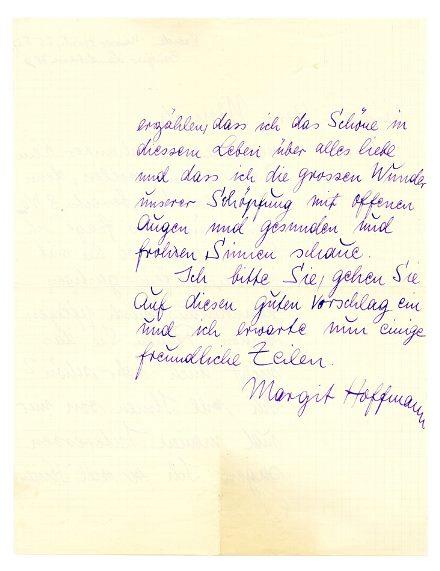 erzählen, dass ich das Schöne in
diessem Leben über alles liebe
und dass ich die grossen Wunder
unserer Schöpfung mit offenen
Augen und gesunden und
frohren Sinnen schaue.
Ich bitte Sie, gehen Sie
auf diesen guten Vorschlag ein
und ich erwarte nun einige
freundliche Zeilen.
Margit Hoffmann